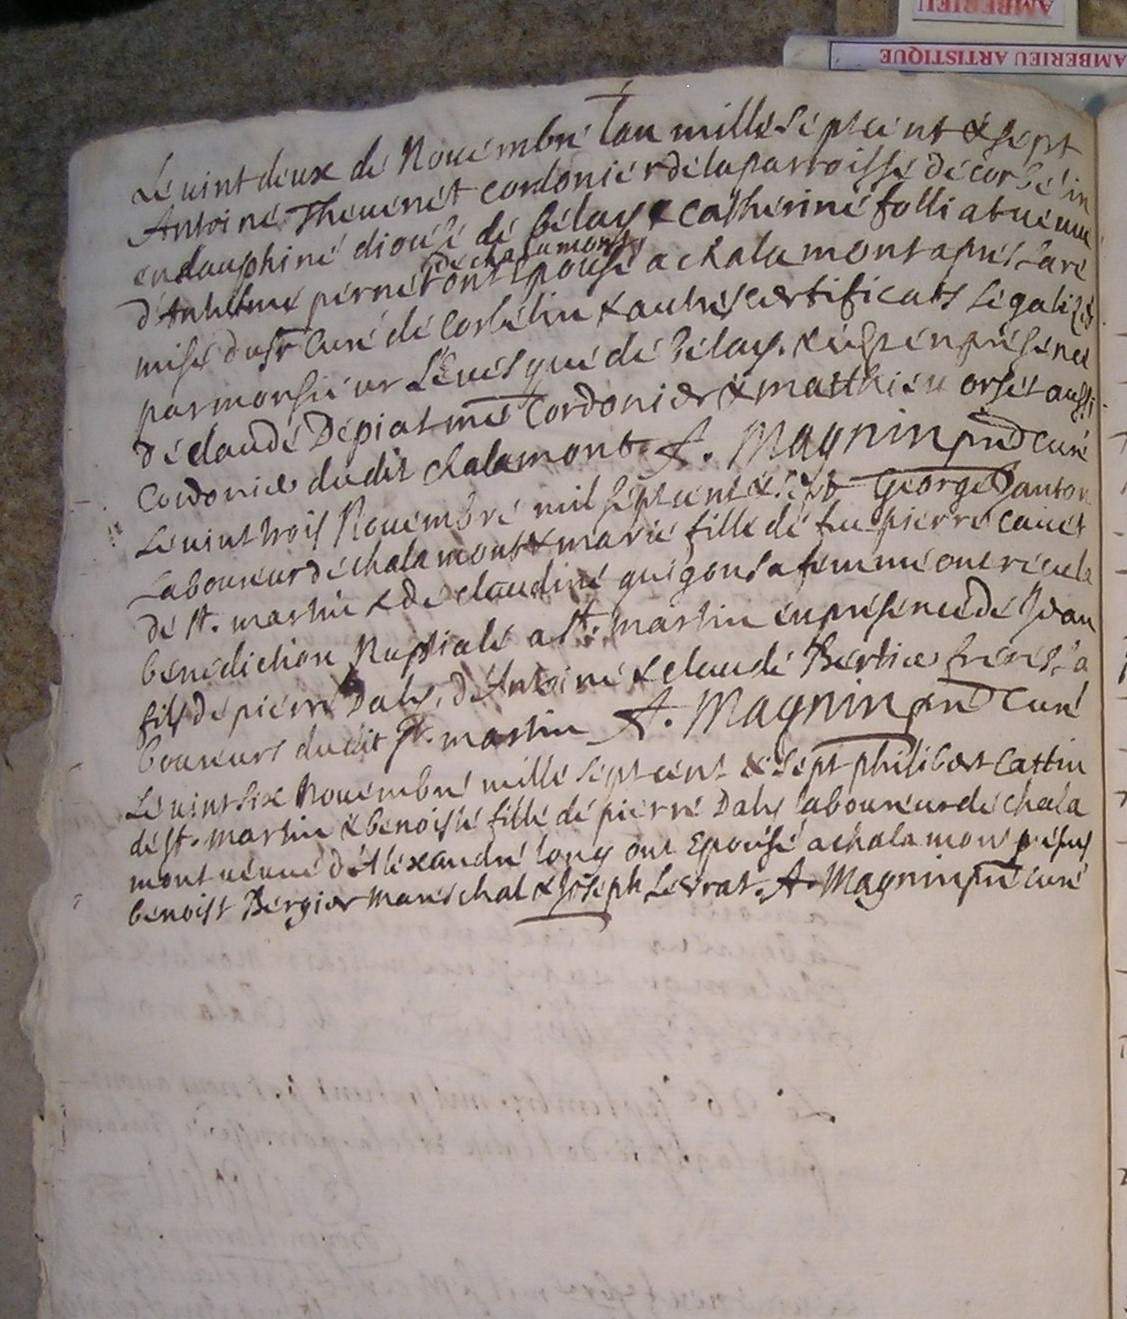 AMBERIEU
AMBERIEU ARTISTIQUE
Le vint deux de Novembre l'an mille sept cent & sept
Antoine Thevenet cordonier de la parroisse de corbelin
en dauphiné diocese de belay & catherine folliat veuve
de chalamont
d'Anthelme pernet ont Epousé a chalamont apres la re
mise du sr Curé de Corbelin & autres certificats legalizes
par monsieur l'Evesque de belay. & ce en presence
de claude Depiat me Cordonier & matthieu orset aussi
Cordonier dudit chalamont A. Magnin pnt Curé
Le vint trois Novembre mil sept cent & sept George Danton
laboureur de chalamont & marie fille de feu pierre
de st. martin & de claudine guigon sa femme ont receu la
benediction Nuptiale a st. martin en presence de Jean
fils de pierre Daly, d'Antoine & claude Bertier freres la
boureurs dudit st. martin A. Magnin pnt Curé
Le vint six Novembre mille sept cent & sept philibert Cattin
de st. martin & benoiste fille de pierre Daly laboureur de chala
mont veuve d'Alexandre long ont Epousé a chalamont
benoist Bergier mareschal & Joseph A. Magnin pnt curé